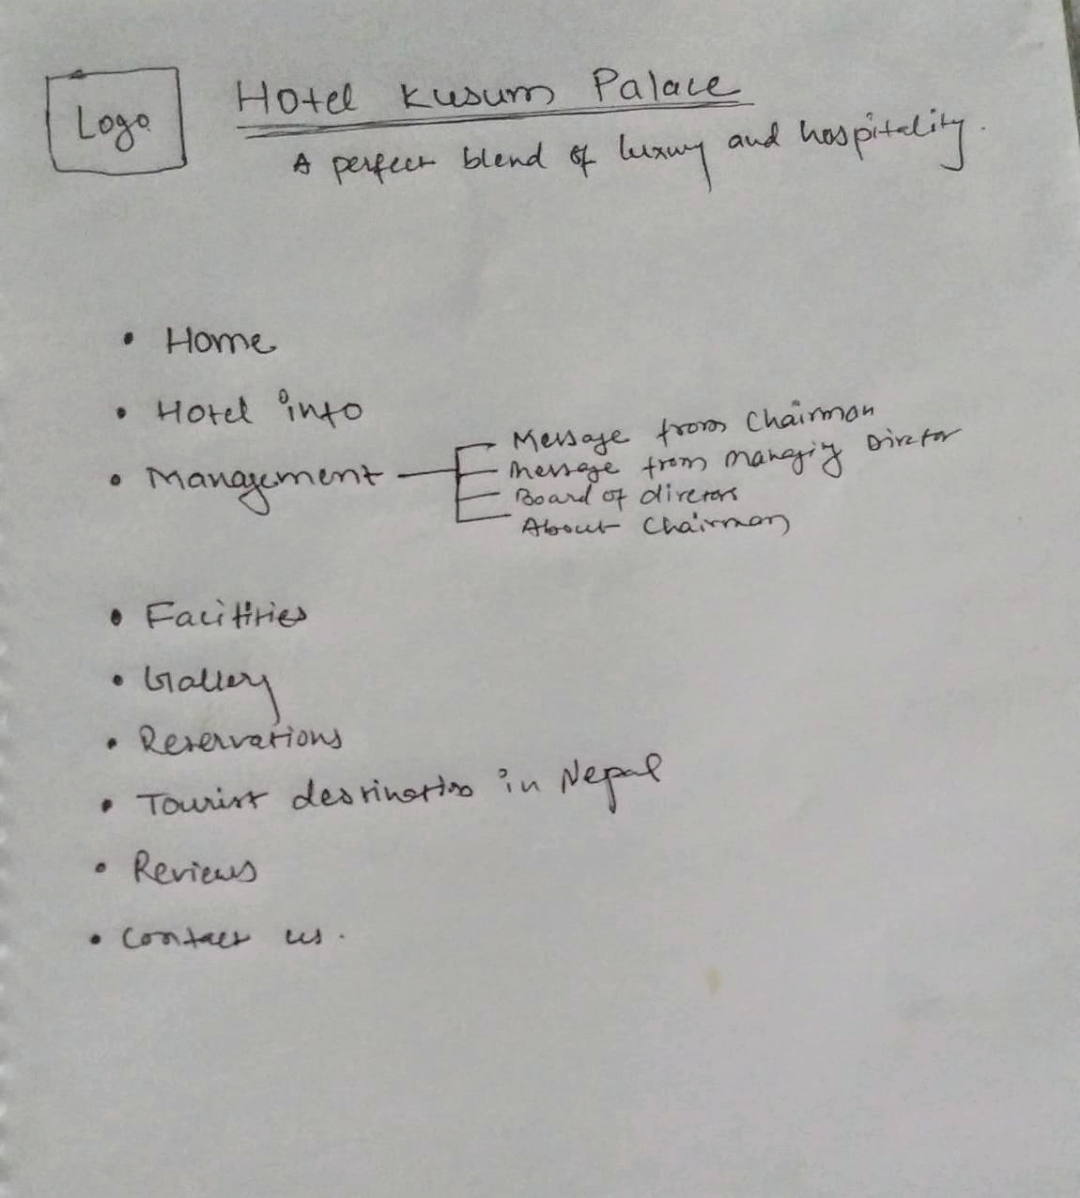 Logo
Hotel Kusum Palace
A perfect blend of luxury and hospitality.
• Home
• Hotel info
• Management
Message from Chairman
Message from Managing Director
Board of directors
About Chairman
• Facilities
• Gallery
• Reservations
• Tourist destination in Nepal
• Reviews
• Contact us.